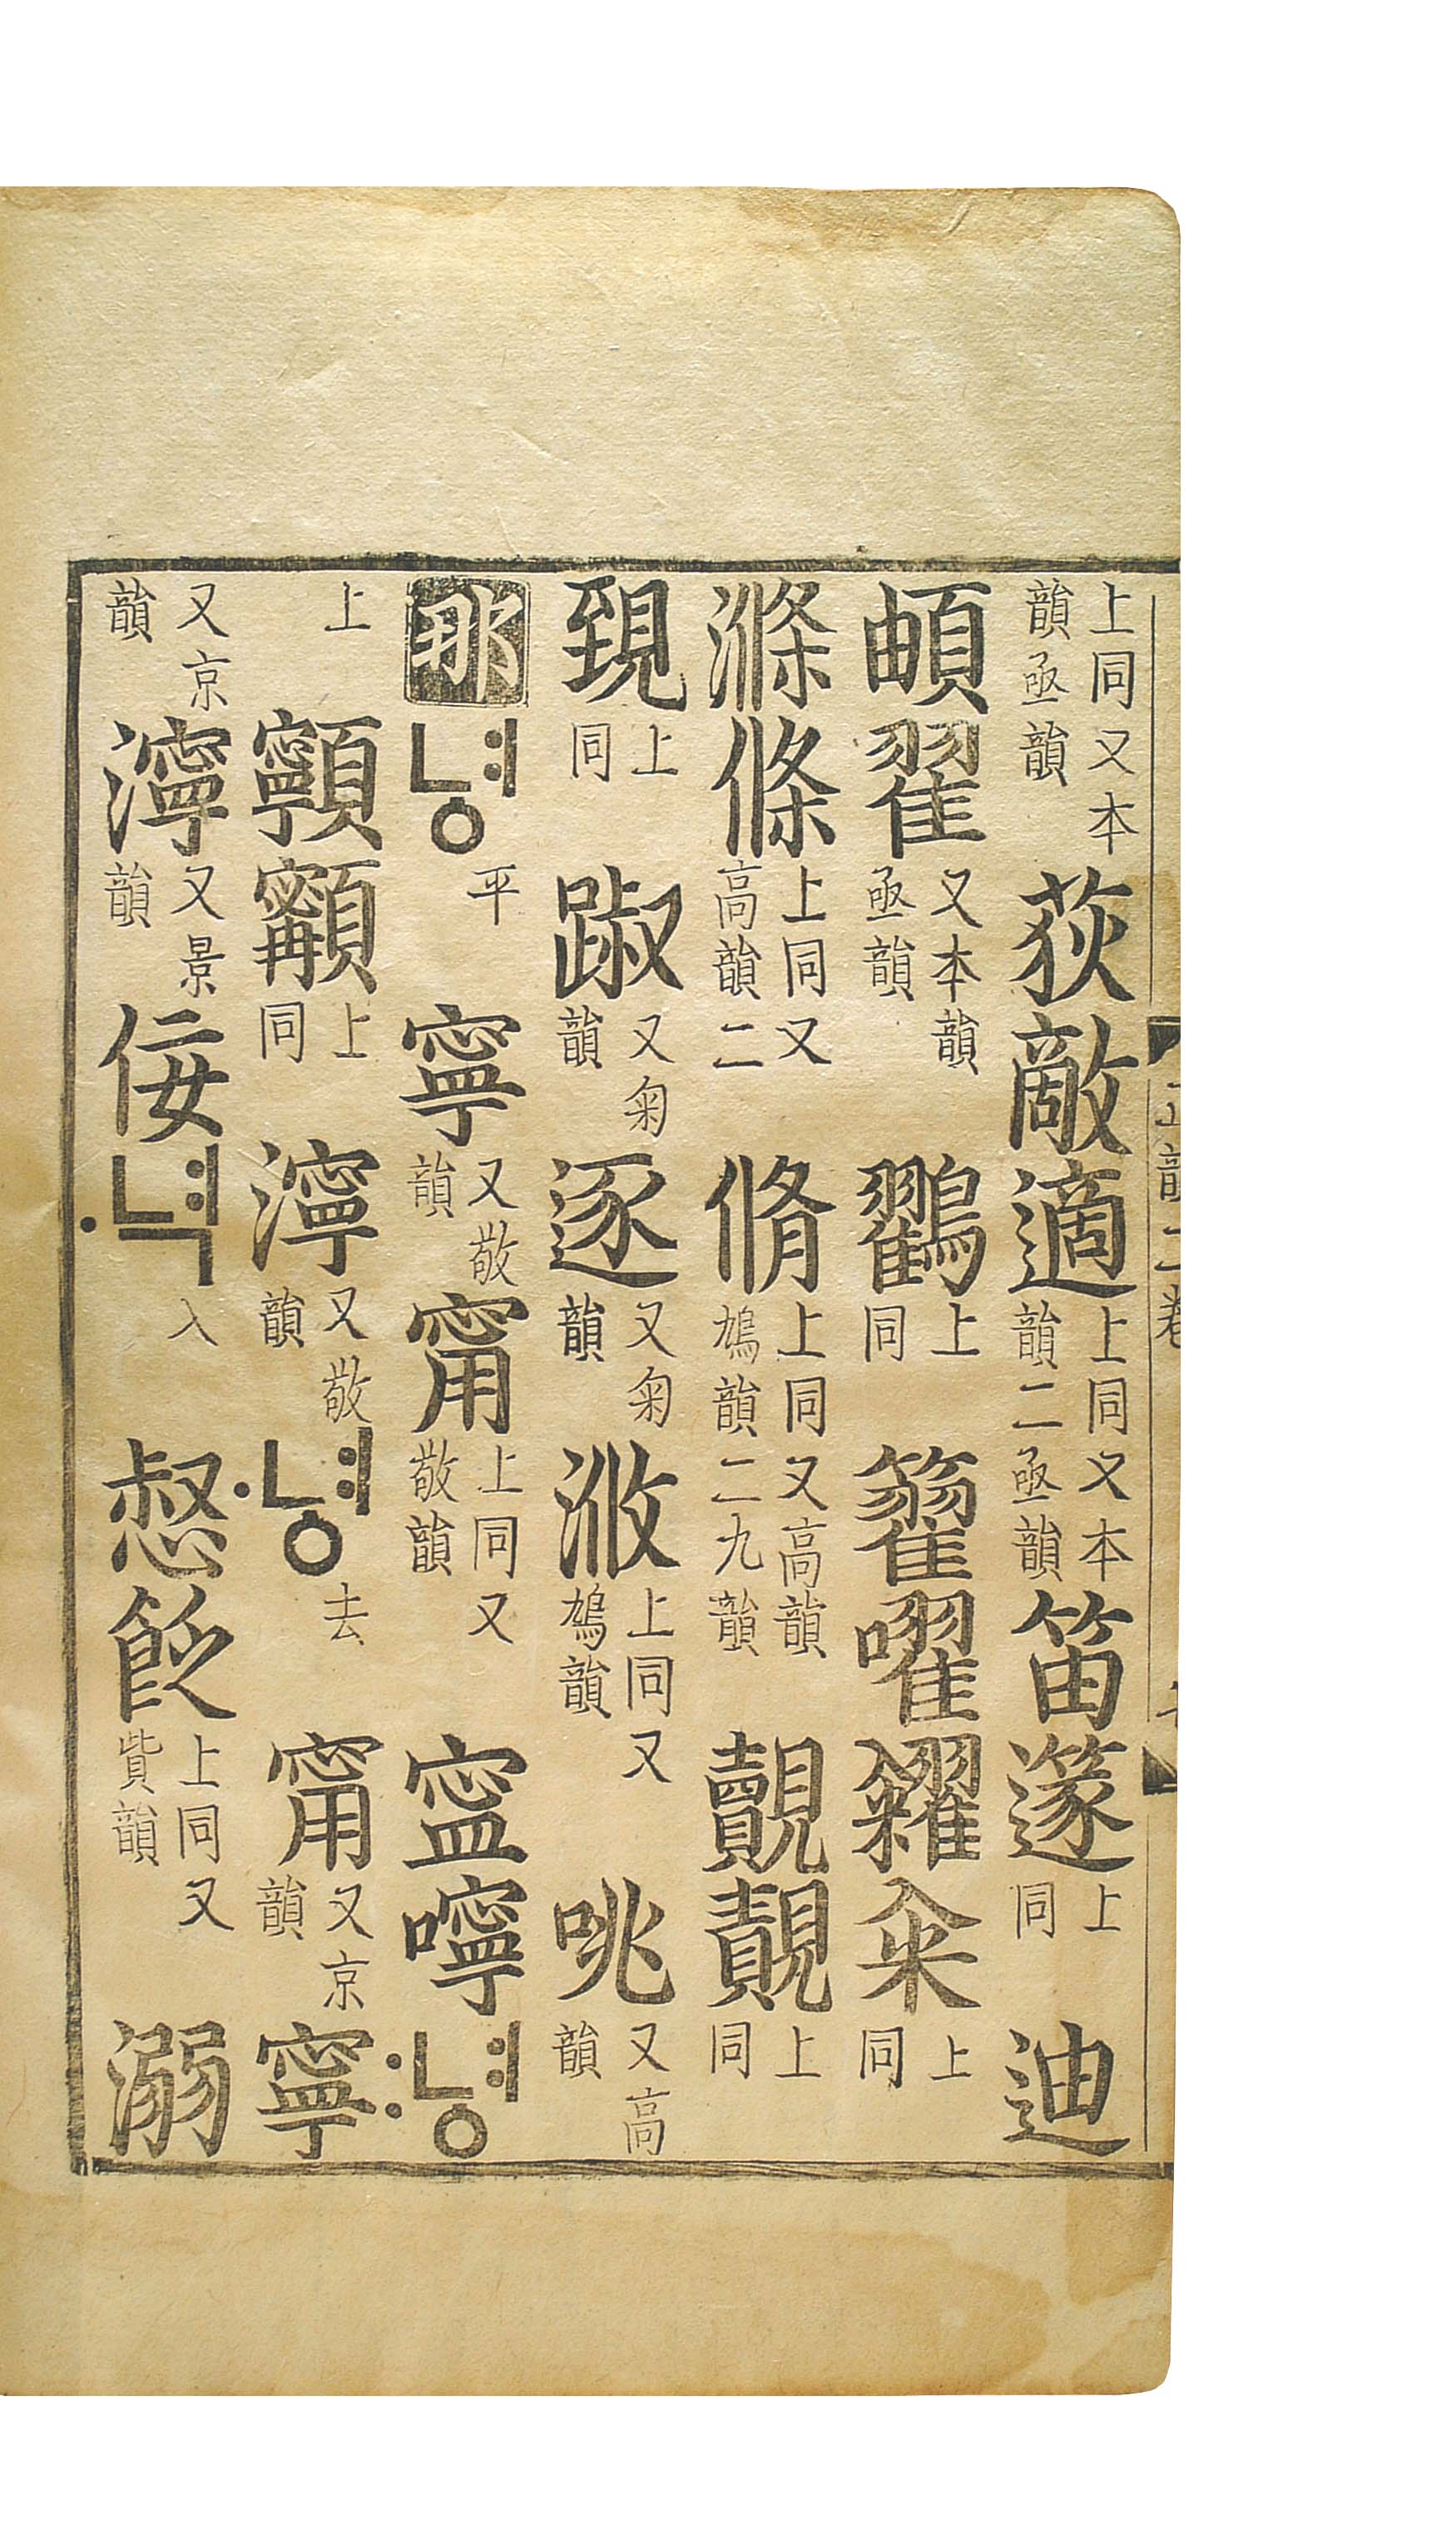 上同又本韻亟韻荻敵適上同又本韻二亟韻笛蓫上同迪
頔翟又本韻亟韻鸐上同籊嚁糴籴上同
滌條上同又高韻二脩上同又高韻鳩韻二九韻覿上同
上同踧又菊韻逐又菊韻浟上同又鳩韻咷又高韻
那녕平寧又敬韻甯上同又敬韻寍嚀〯녕
上上同濘又敬韻〮녕去甯又京韻寧
又京韻濘又景韻佞〮녁入惄上同又貲韻溺
正韻二卷